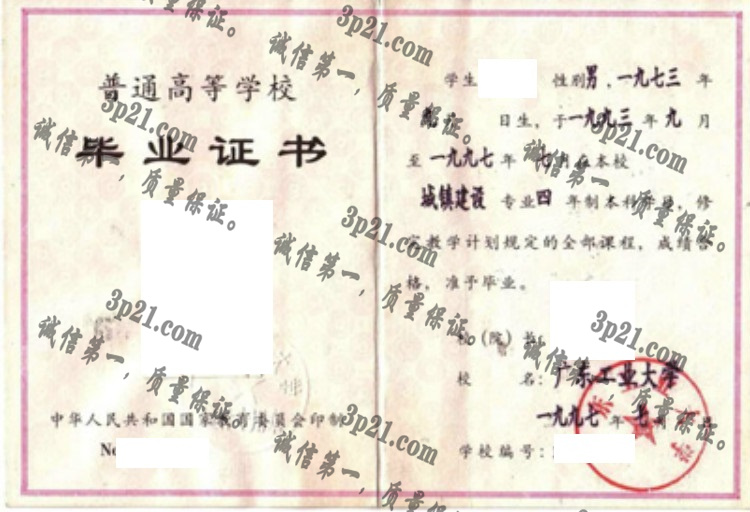 普通高等学校
毕业证书
中华人民共和国国家教育委员会印制
No
学生 性别男，一九七三年
日生，于一九九三年九月
至一九九七年七月在本校
城镇建设专业四年制本科 修
完教学计划规定的全部课程，成绩合
格，准予毕业。
校（院）长：
校 名：广东工业大学
一九九七年七月 日
学校编号：
3p21.com
诚信第一，质量保证。
3p21.com
诚信第一，质量保证。
3p21.com
诚信第一，质量保证。
3p21.com
诚信第一，质量保证。
3p21.com
诚信第一，质量保证。
3p21.com
诚信第一，质量保证。
3p21.com
诚信第一，质量保证。
3p21.com
诚信第一，质量保证。